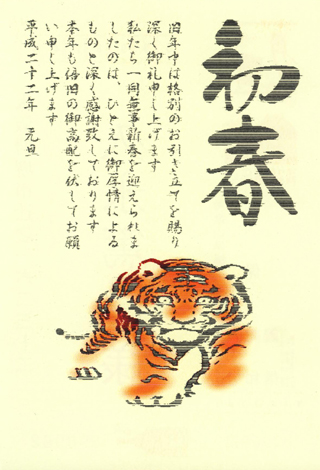 初春
旧年中は格別のお引き立てを賜り
深く御礼申し上げます
私たち一同無事新春を迎えられま
したのは、ひとえに御厚情による
ものと深く感謝致しております
本年も倍旧の御高配を伏してお願
い申し上げます
平成二十二年 元旦